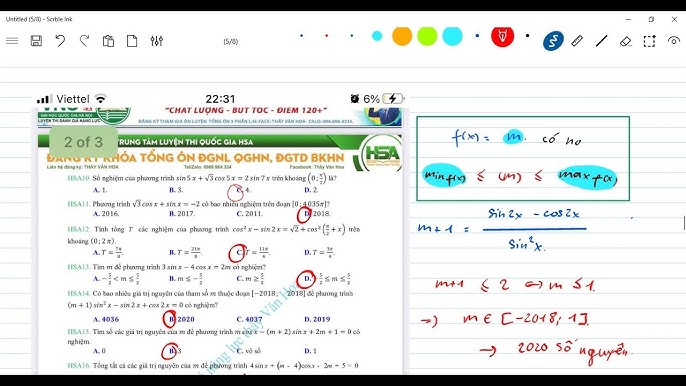 Untitled (5/8) - Scrble Ink
(5/8)
Viettel 22:31 6%
ĐẠI HỌC QUỐC GIA HÀ NỘI
LUYỆN THI ĐÁNH GIÁ NĂNG LỰC
"CHẤT LƯỢNG - BỨT TỐC - ĐIỂM 120+"
ĐĂNG KÝ THAM GIA ÔN LUYỆN TỔNG ÔN 3 PHẦN
2 of 3
TRUNG TÂM LUYỆN THI QUỐC GIA HSA
ĐĂNG KÝ KHÓA TỔNG ÔN ĐGNL QGHN, ĐGTD BKHN
HSA
Liên hệ đăng ký: THẦY VĂN HOA Tel/Zalo: 096.984.334 Facebook: Thầy Văn Hoa
HSA10. Số nghiệm của phương trình sin 5x + √3 cos 5x = 2 sin 7x trên khoảng (0; π/2) là?
A. 1. B. 3. C. 4. D. 2.
HSA11. Phương trình √3 cos x + sin x = −2 có bao nhiêu nghiệm trên đoạn [0; 4035π]?
A. 2016. B. 2017. C. 2011. D. 2018.
HSA12. Tính tổng T các nghiệm của phương trình cos² x − sin 2x = √2 + cos² (π/2 + x) trên
khoảng (0; 2π).
A. T = 7π/8. B. T = 21π/8. C. T = 11π/4. D. T = 3π/4.
HSA13. Tìm m để phương trình 3 sin x − 4 cos x = 2m có nghiệm?
A. −5/2 < m ≤ 5/2. B. m ≤ −5/2. C. m ≥ 5/2. D. −5/2 ≤ m ≤ 5/2
HSA14. Có bao nhiêu giá trị nguyên của tham số m thuộc đoạn [−2018; 2018] để phương trình
(m + 1) sin² x − sin 2x + cos 2x = 0 có nghiệm?
A. 4036 B. 2020 C. 4037 D. 2019
HSA15. Tìm số các giá trị nguyên của m để phương trình m cos x − (m + 2) sin x + 2m + 1 = 0 có
nghiệm.
A. 0 B. 3 C. vô số D. 1
HSA16. Tổng tất cả các giá trị nguyên của m để phương trình 4 sin x + (m - 4)cos x - 2m + 5 = 0
f(x) = m có no
min f(x) ≤ (m) ≤ max f(x)
m+1 = sin2x - cos2x / sin²x.
m+1 ≤ 2 ⇔ m ≤ 1
⇒ m ∈ [-2018; 1]
→ 2020 số nguyên.